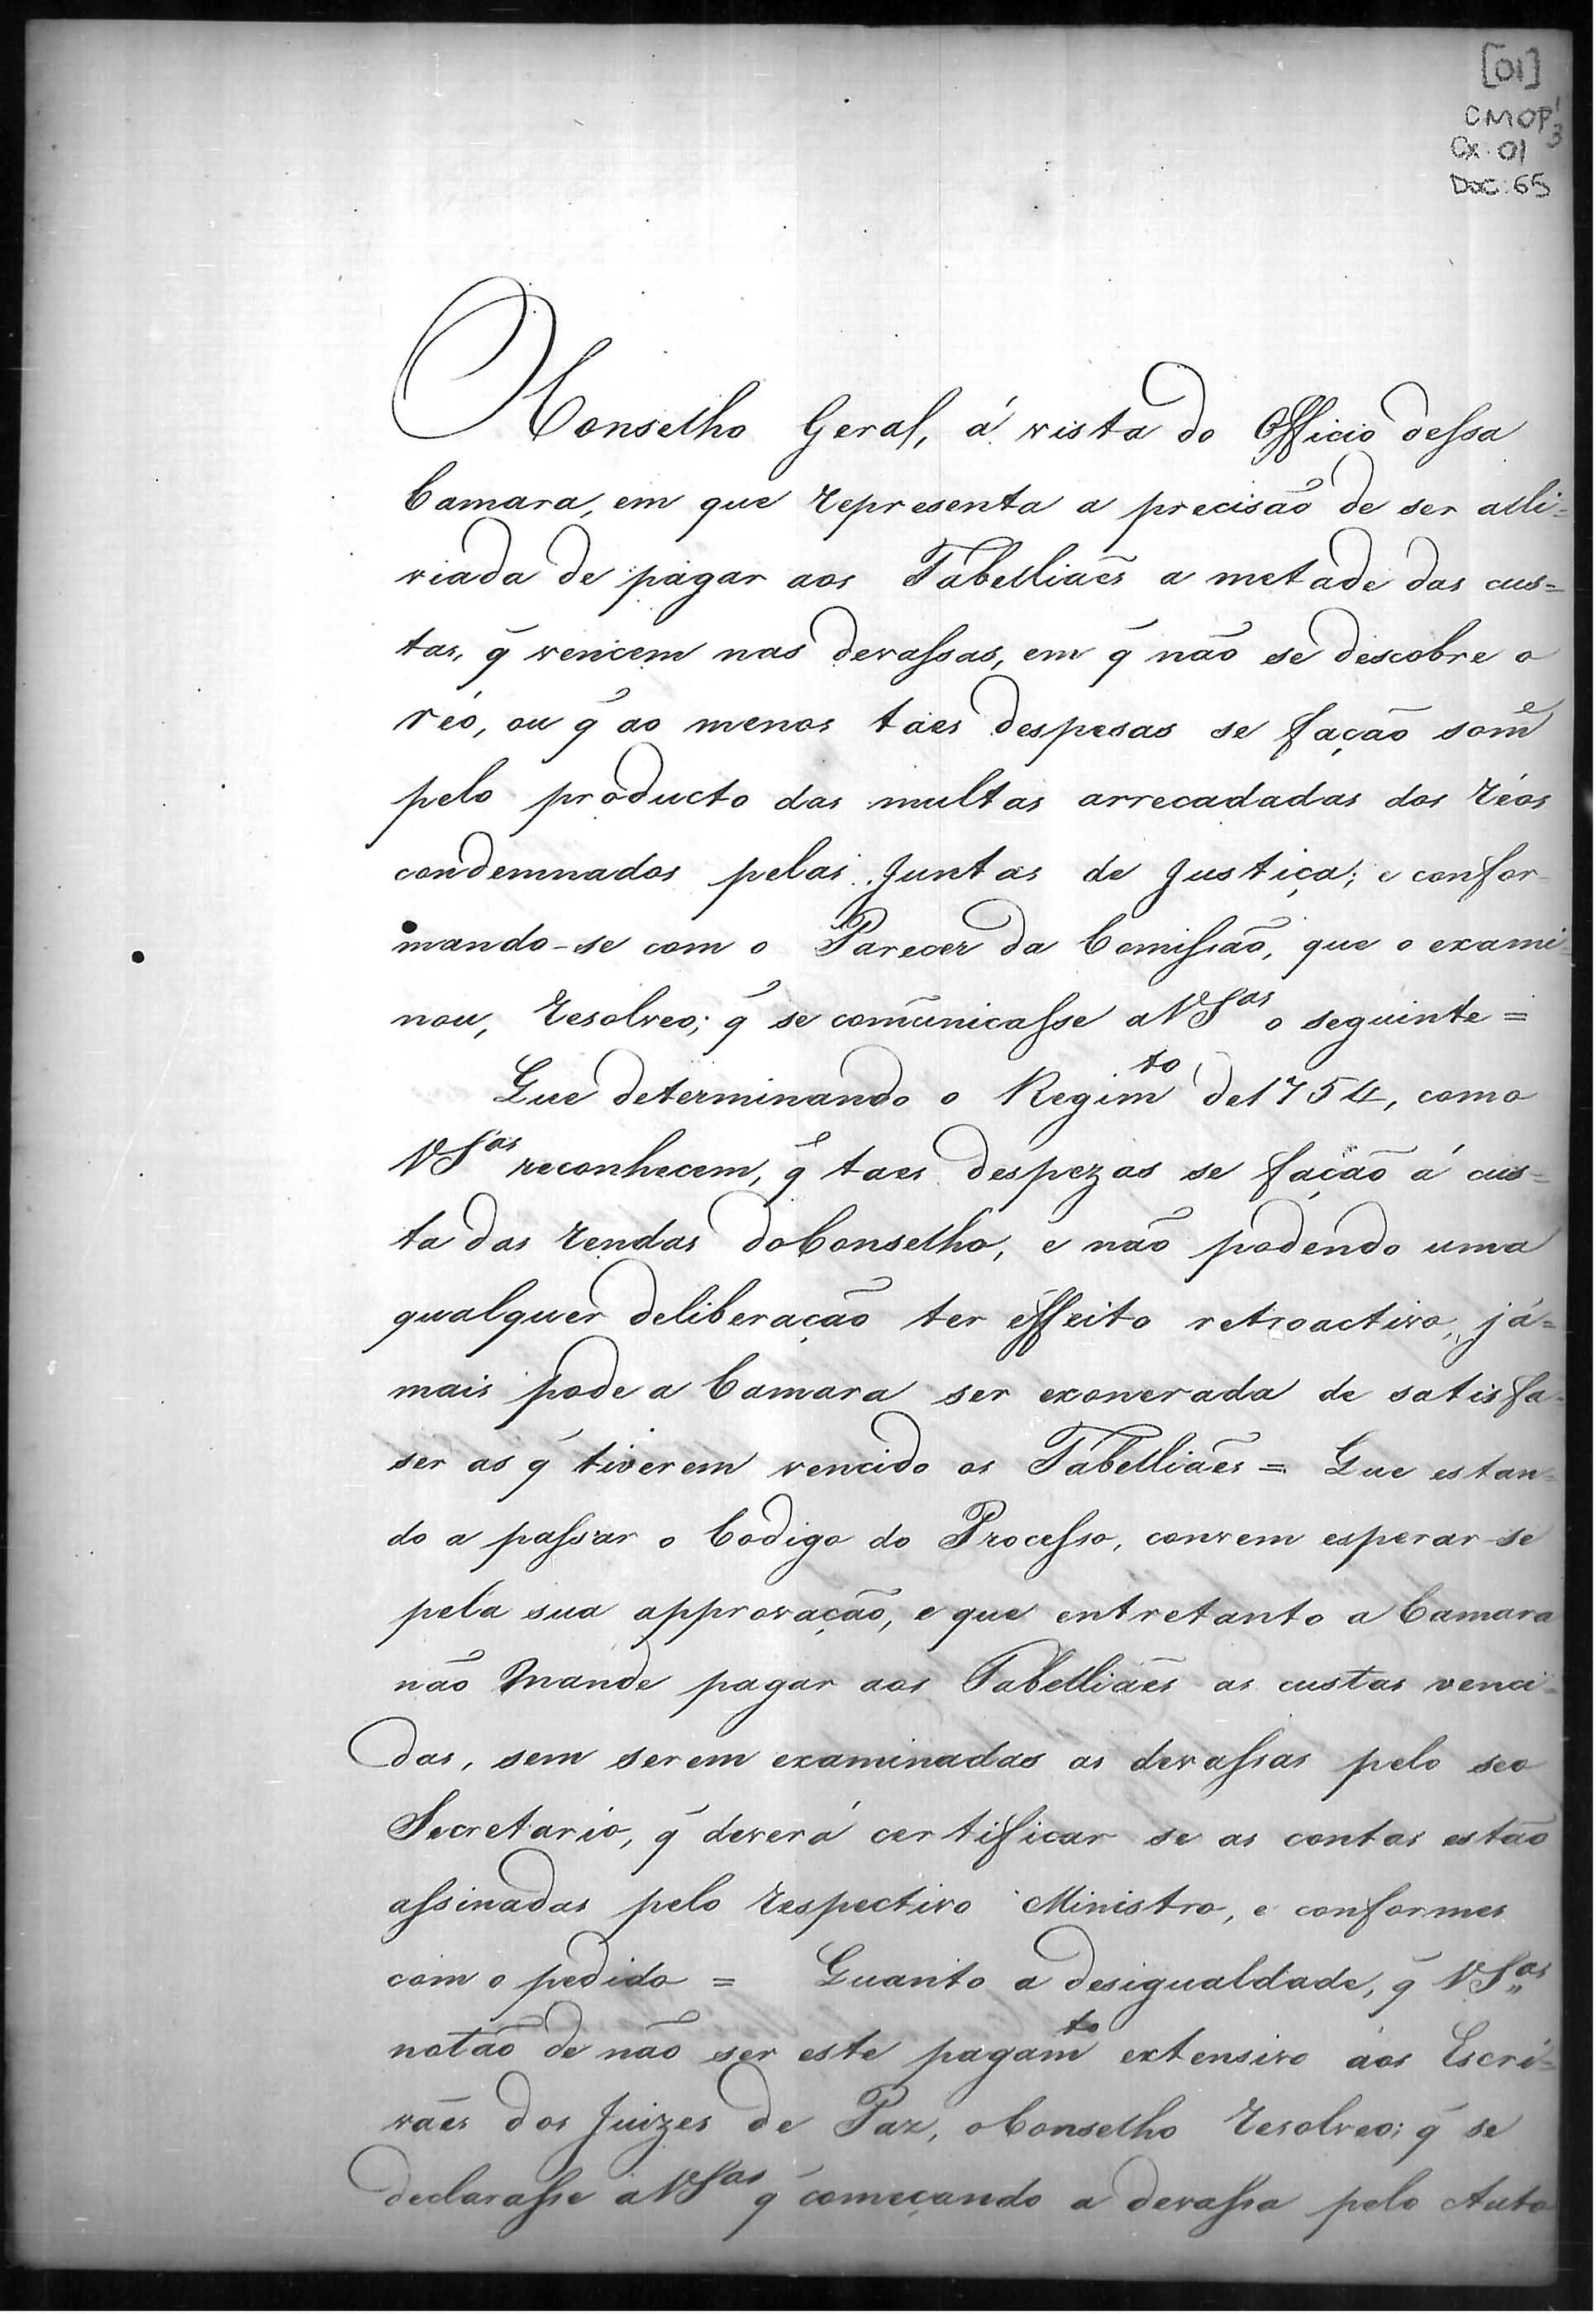 [01]
CMOP 1/3
Cx. 01
Doc: 65
O Conselho Geral, á vista do Officio dessa
Camara, em que representa a precisão de ser alli=
viada de pagar aos Tabelliães a metade das cus=
tas, q̃ vencem nas devassas, em q̃ não se descobre o
réo, ou q̃ ao menos taes despesas se fação som̃e
pelo producto das multas arrecadadas dos réos
condemnados pelas Juntas de Justiça; e confor-
mando-se com o Parecer da Comissão, que o exami=
nou, resolveo; q̃ se comũnicasse a VSas o seguinte =
Que determinando o Regim̃to de 1754, como
VSas reconhecem, q̃ taes despezas se fação á cus=
ta das rendas do Conselho, e não podendo uma
qualquer deliberação ter effeito retroactivo, já=
mais pode a Camara ser exonerada de satisfa-
ser as q̃ tiverem vencido os Tabelliães = Que estan-
do a passar o Codigo do Processo, convem esperar-se
pela sua approvação, e que entretanto a Camara
não Mande pagar aos Tabelliães as custas venci=
das, sem serem examinadas as devassas pelo seo
Secretario, q̃ deverá certificar se as contas estão
assinadas pelo respectivo Ministro, e conformes
com o pedido = Quanto a desigualdade, q̃ VSas
notão de não ser este pagam̃to extensivo aos Escri=
vães dos Juizes de Paz, o Conselho resolveo; q̃ se
declarasse a VSas q̃ começando a devassa pelo Auto